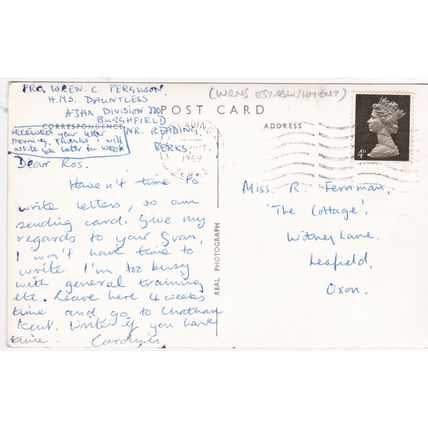 PRO. WREN. C. FERGUSON.
H.M.S. DAUNTLESS
DIVISION
BURGHFIELD
NR. READING,
BERKS.
(WRNS ESTABLISHMENT)
POST CARD
CORRESPONDENCE
ADDRESS
received your letter
morning. Thanks I will
write later in week
Dear Ros.
Haven't time to
write letters, so am
sending card. Give my
regards to your Gran,
I won't have time to
write I'm too busy
with general training
etc. Leave here 4 weeks
time and go to Chatham
Kent. Write if you have
time. Carolyn.
REAL PHOTOGRAPH
4D
1969
Miss. R. Ferriman,
'The Cottage',
Witney Lane,
Leafield,
Oxon.